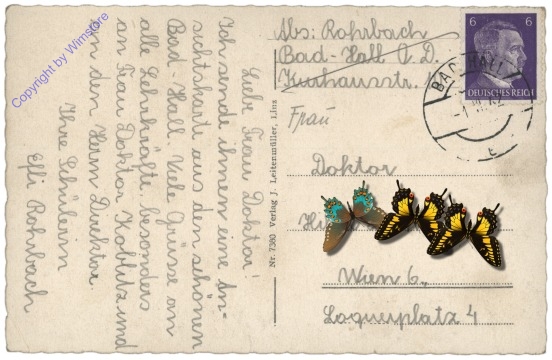 Copyright by Wimstore
Liebe Frau Doktor!
Ich sende ihnen eine An-
sichtskarte aus den schönen
Bad-Hall. Viele Grüsse an
alle Lehrkräfte besonders
an Frau Doktor Koblitz und
an den Herrn Direktor.
Ihre Schülerin
Elfi Rohrbach
Nr. 7360 Verlag J. Leitenmüller, Linz
Abs: Rohrbach
Bad-Hall O. D.
Kurhausstr.
6 6
DEUTSCHES REICH
BAD HALL
Frau
Doktor
Wien 6.,
Loquerplatz 4